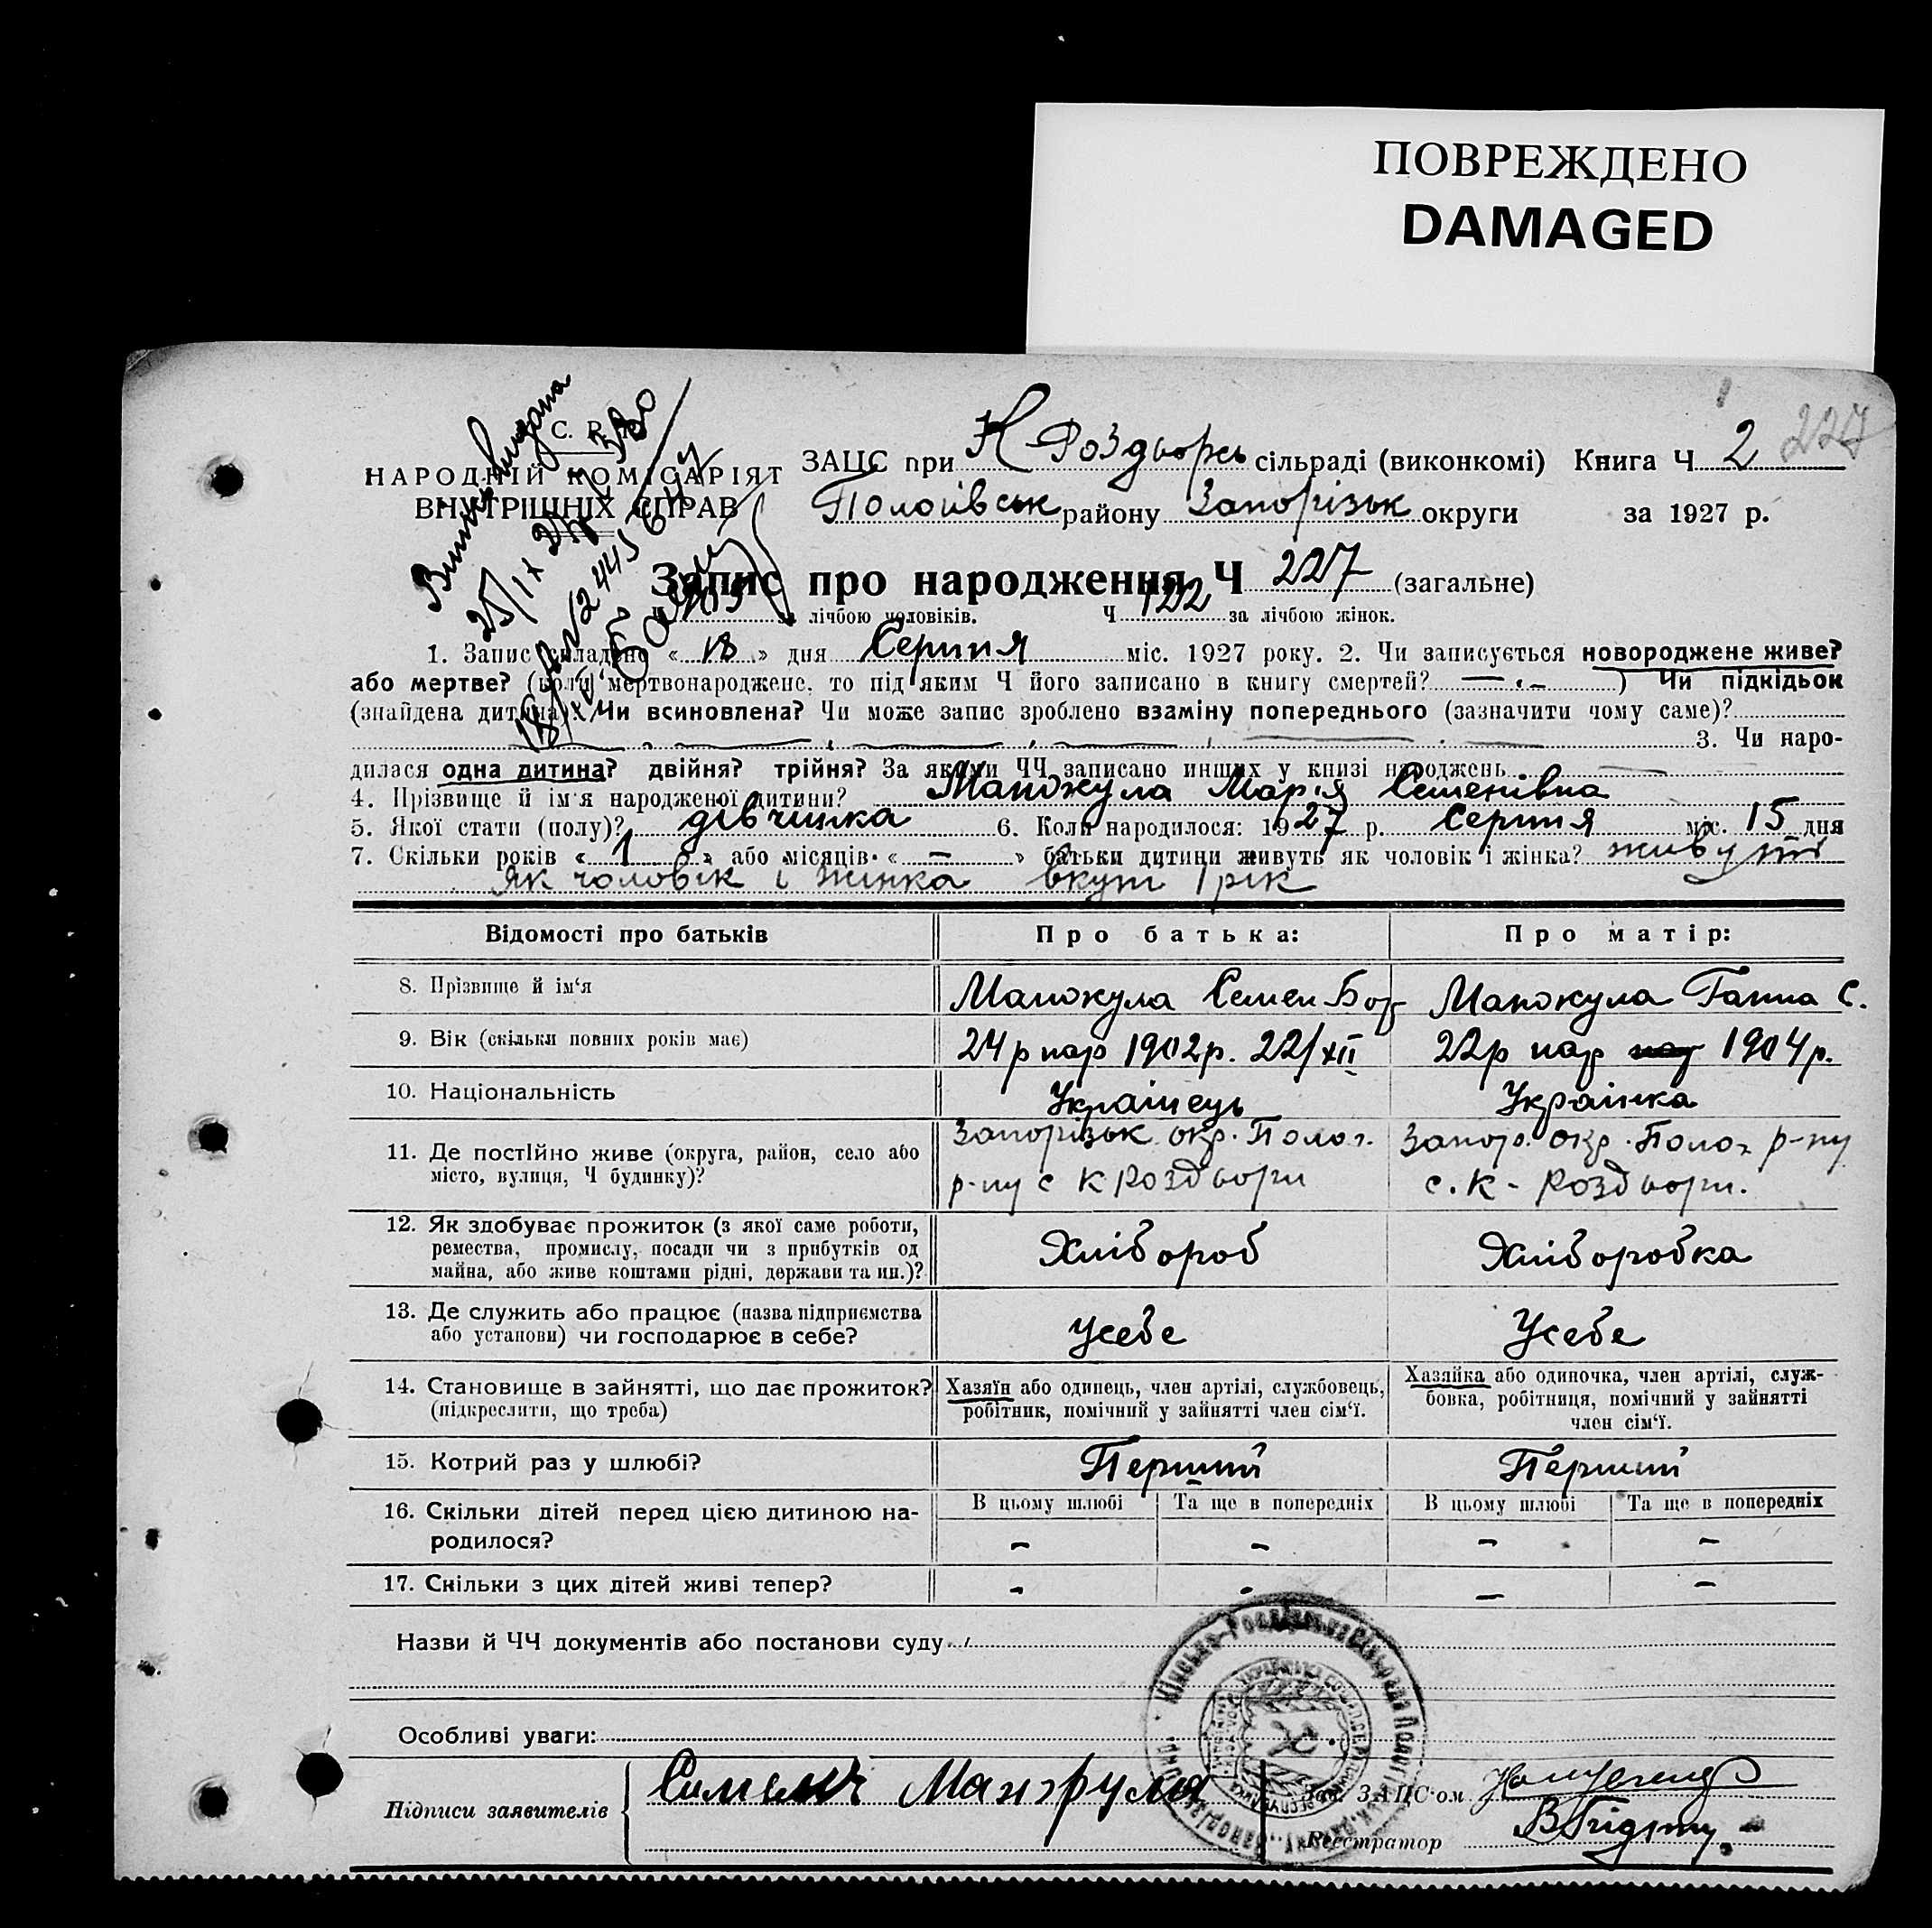 ПОВРЕЖДЕНО
DAMAGED
227
С. Р. Р.
НАРОДНІЙ КОМІСАРІЯТ
ВНУТРІШНІХ СПРАВ
Виписка видана
25/IX
ЗАЦС при К Роздорсь сільраді (виконкомі) Книга Ч 2
Пологівськ району Запорізьк округи за 1927 р.
Запис про народження Ч 227 (загальне)
105 лічбою чоловіків. Ч 122 за лічбою жінок.
1. Запис складено « 18 » дня Серпня міс. 1927 року. 2. Чи записується новороджене живе?
або мертве? (коли мертвонароджене, то під яким Ч його записано в книгу смертей? — ) Чи підкідьок
(знайдена дитина)? Чи всиновлена? Чи може запис зроблено взаміну попереднього (зазначити чому саме)?
3. Чи наро-
дилася одна дитина? двійня? трійня? За якими ЧЧ записано инших у книзі народжень
4. Прізвище й ім'я народженої дитини? Манжула Марія Семенівна
5. Якої стати (полу)? дівчинка 6. Коли народилося: 1927 р. Серпня міс. 15 дня
7. Скільки років « 1 » або місяців « — » батьки дитини живуть як чоловік і жінка? живуть
як чоловік і жінка вкупі 1 рік
Відомості про батьків Про батька: Про матір:
8. Прізвище й ім'я Манжула Семен Манжула Ганна С.
9. Вік (скільки повних років має) 24 р нар 1902 р. 22/XII 22 р нар 1904 р.
10. Національність Українець Українка
11. Де постійно живе (округа, район, село або місто, вулиця, Ч будинку)? Запорізьк окр. Полог. р-ну с К Роздори Запор. окр. Полог р-ну с. К-Роздори.
12. Як здобуває прожиток (з якої саме роботи, ремества, промислу, посади чи з прибутків од майна, або живе коштами рідні, держави та ин.)? Хлібороб Хліборобка
13. Де служить або працює (назва підприємства або установи) чи господарює в себе? Усебе Усебе
14. Становище в зайнятті, що дає прожиток? (підкреслити, що треба) Хазяїн або одинець, член артілі, службовець, робітник, помічний у зайнятті член сім'ї. Хазяйка або одиночка, член артілі, служ-бовка, робітниця, помічний у зайнятті член сім'ї.
15. Котрий раз у шлюбі? Перший Перший
В цьому шлюбі Та ще в попередніх В цьому шлюбі Та ще в попередніх
16. Скільки дітей перед цією дитиною на-родилося? – – – –
17. Скільки з цих дітей живі тепер? - - – –
Назви й ЧЧ документів або постанови суду
Особливі уваги:
Підписи заявителів Манжула Зав. ЗАЦС'ом
Реєстратор